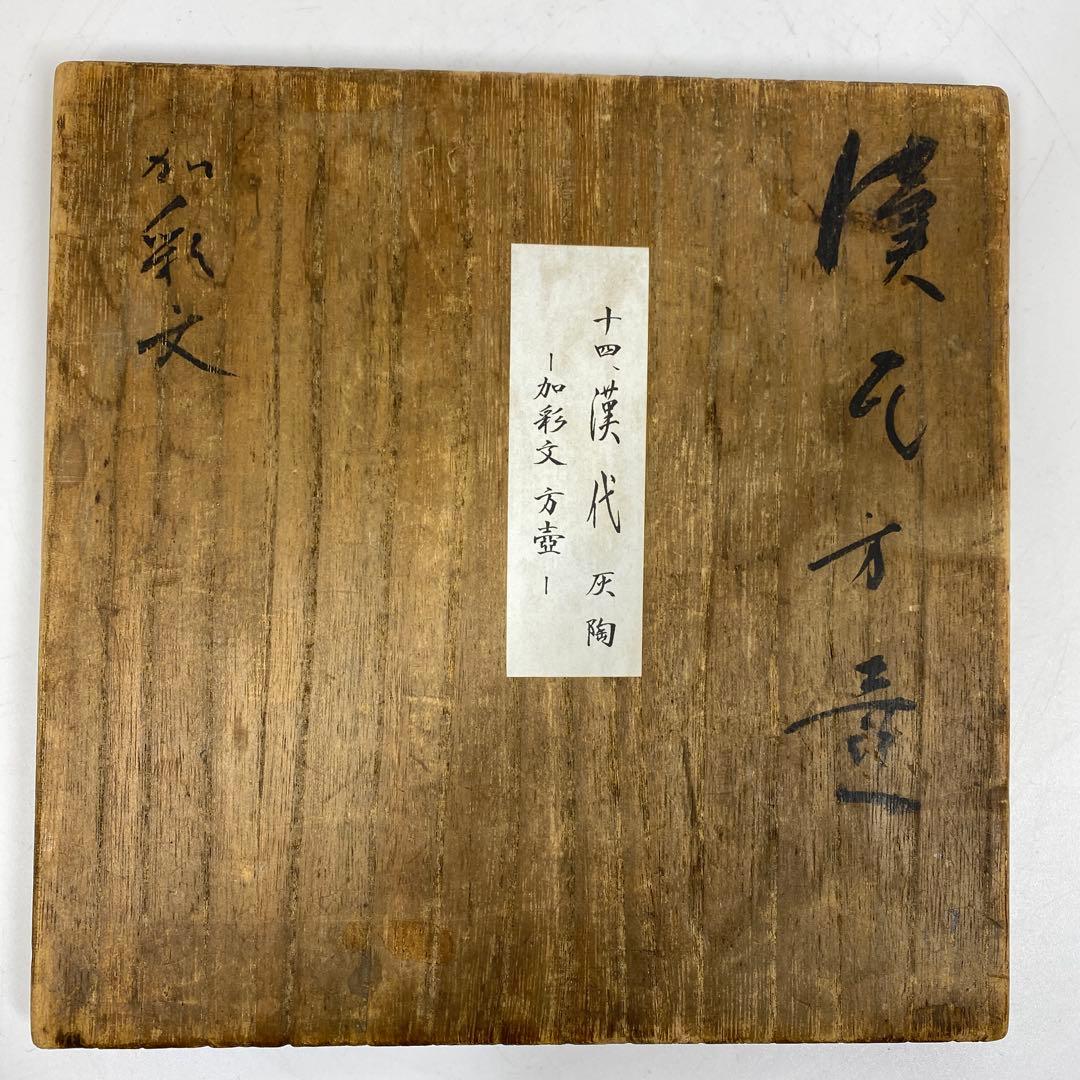 漢瓦方壺
十四、漢代 灰陶
ー加彩文方壺ー
加彩文